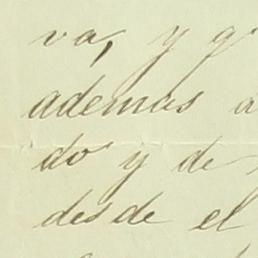 va, y q
ademas a
do y de
desde el